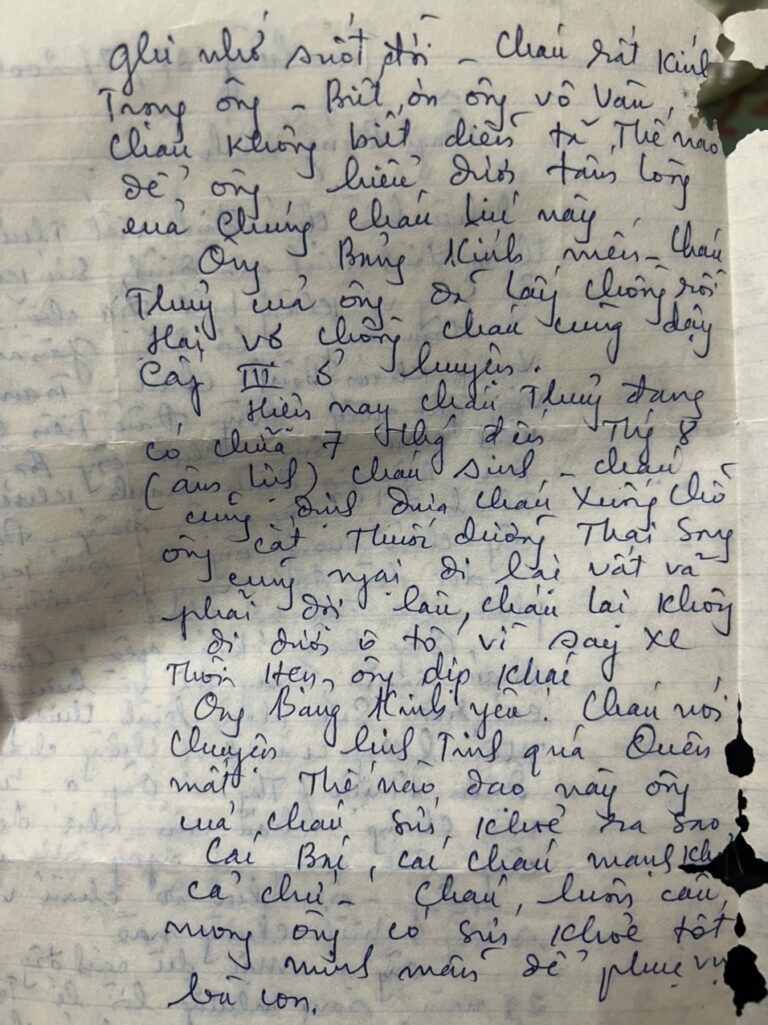 ghi nhớ suốt đời - Cháu rất kính
Trọng ông - Biết ơn ông vô vàn,
Cháu không biết diễn tả Thế nào
để ông hiểu được tấm lòng
của chúng cháu lúc này.
Ông Bảng Kính mến - Cháu
Thuỷ của ông đã lấy chồng rồi
Hai vợ chồng cháu cùng dậy
Cấp III ở huyện.
Hiện nay cháu Thuỷ đang
có chửa 7 thg đến Thg 8
(âm lịch) cháu sinh - cháu
cũng định đưa cháu xuống chỗ
ông cắt Thuốc dưỡng Thai Song
cũng ngại đi lại vất vả
phải đợi lâu, cháu lại không
đi được ô tô vì say xe
Thôi Hẹn ông dịp khác
Ông Bảng Kính yêu! Cháu nói
chuyện linh Tinh quá Quên
mất Thế nào dạo này ông
của cháu sức khoẻ ra sao,
Các Bác, các cháu mạnh kh
cả chứ - Cháu luôn cầu
mong ông có sức khoẻ tốt
minh mẫn để phục vụ
bà con.